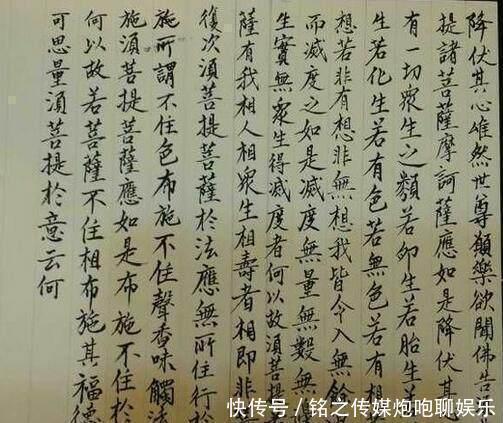 降伏其心唯然世尊願樂欲聞佛告
提諸菩薩摩訶薩應如是降伏其
有一切眾生之類若卵生若胎生若
生若化生若有色若無色若有想
想若非有想非無想我皆令入無餘
而滅度之如是滅度無量無數無
生實無眾生得滅度者何以故須菩提
薩有我相人相眾生相壽者相即非
復次須菩提菩薩於法應無所住行於
施所謂不住色布施不住聲香味觸法
施須菩提菩薩應如是布施不住於
何以故若菩薩不住相布施其福德
可思量須菩提於意云何
快传号/铭之传媒炮咆聊娱乐